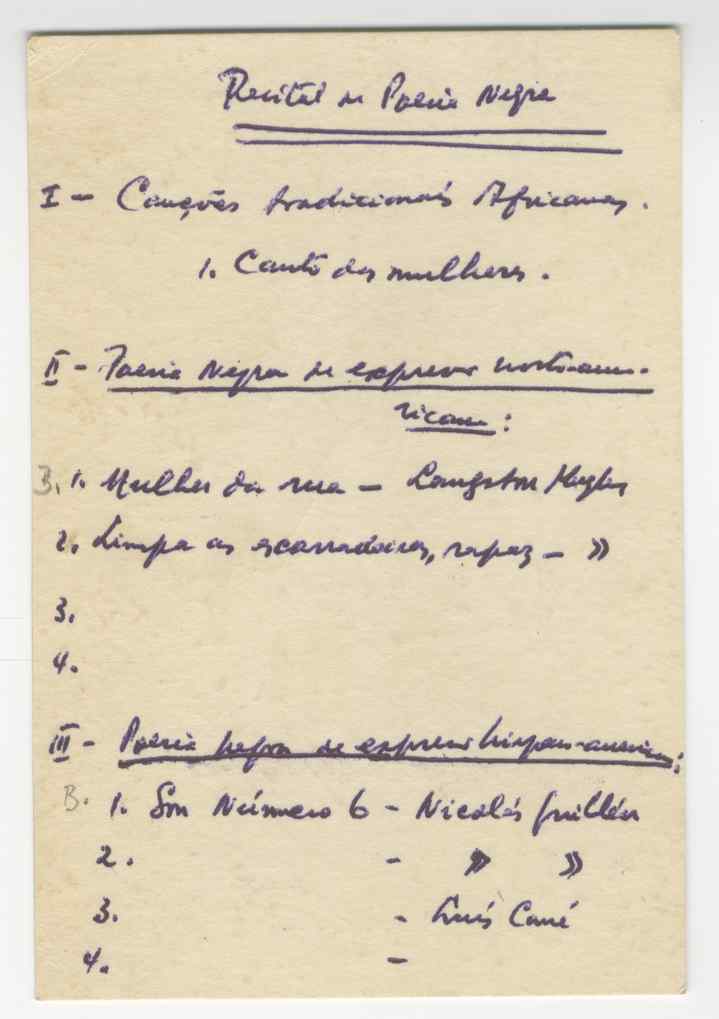 Recital de Poesia Negra
I - Canções tradicionais Africanas.
1. Canto das mulheres.
II - Poesia Negra de expressão norte-ame-
ricana:
B. 1. Mulher da rua - Langston Hughes
2. Limpa as escarradeiras, rapaz - »
3.
4.
III - Poesia negra de expressão hispano-americana:
B. 1. Son Número 6 - Nicolás Guillén
2. - » »
3. - Luís Cané
4. -